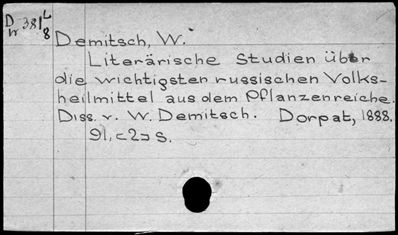 D W 381 L 8
Demitsch, W.
Literärische Studien über
die wichtigsten russischen Volks-
heilmittel aus dem Pflanzenreiche.
Diss. v. W. Demitsch. Dorpat, 1888.
91, c2ɔ S.